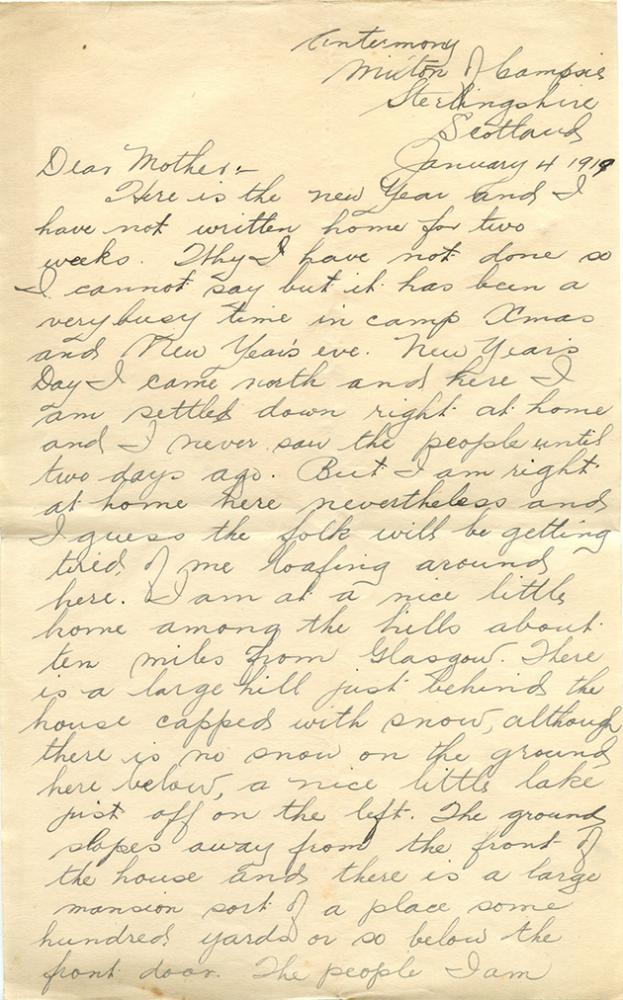 Antermony
Milton of Campsie
Sterlingshire
Scotland
January 4 1919
Dear Mother:-
Here is the new Year and I
have not written home for two
weeks. Why I have not done so
I cannot say but it has been a
very busy time in camp Xmas
and New Year's eve. New Year's
Day I came north and here I
am settled down right at home
and I never saw the people until
two days ago. But I am right
at home here nevertheless and
I guess the folk will be getting
tired of me loafing around
here. I am at a nice little
home among the hills about
ten miles from Glasgow. There
is a large hill just behind the
house capped with snow, although
there is no snow on the ground
here below, a nice little lake
just off on the left. The ground
slopes away from the front of
the house and there is a large
mansion sort of a place some
hundred yards or so below the
front door. The people I am